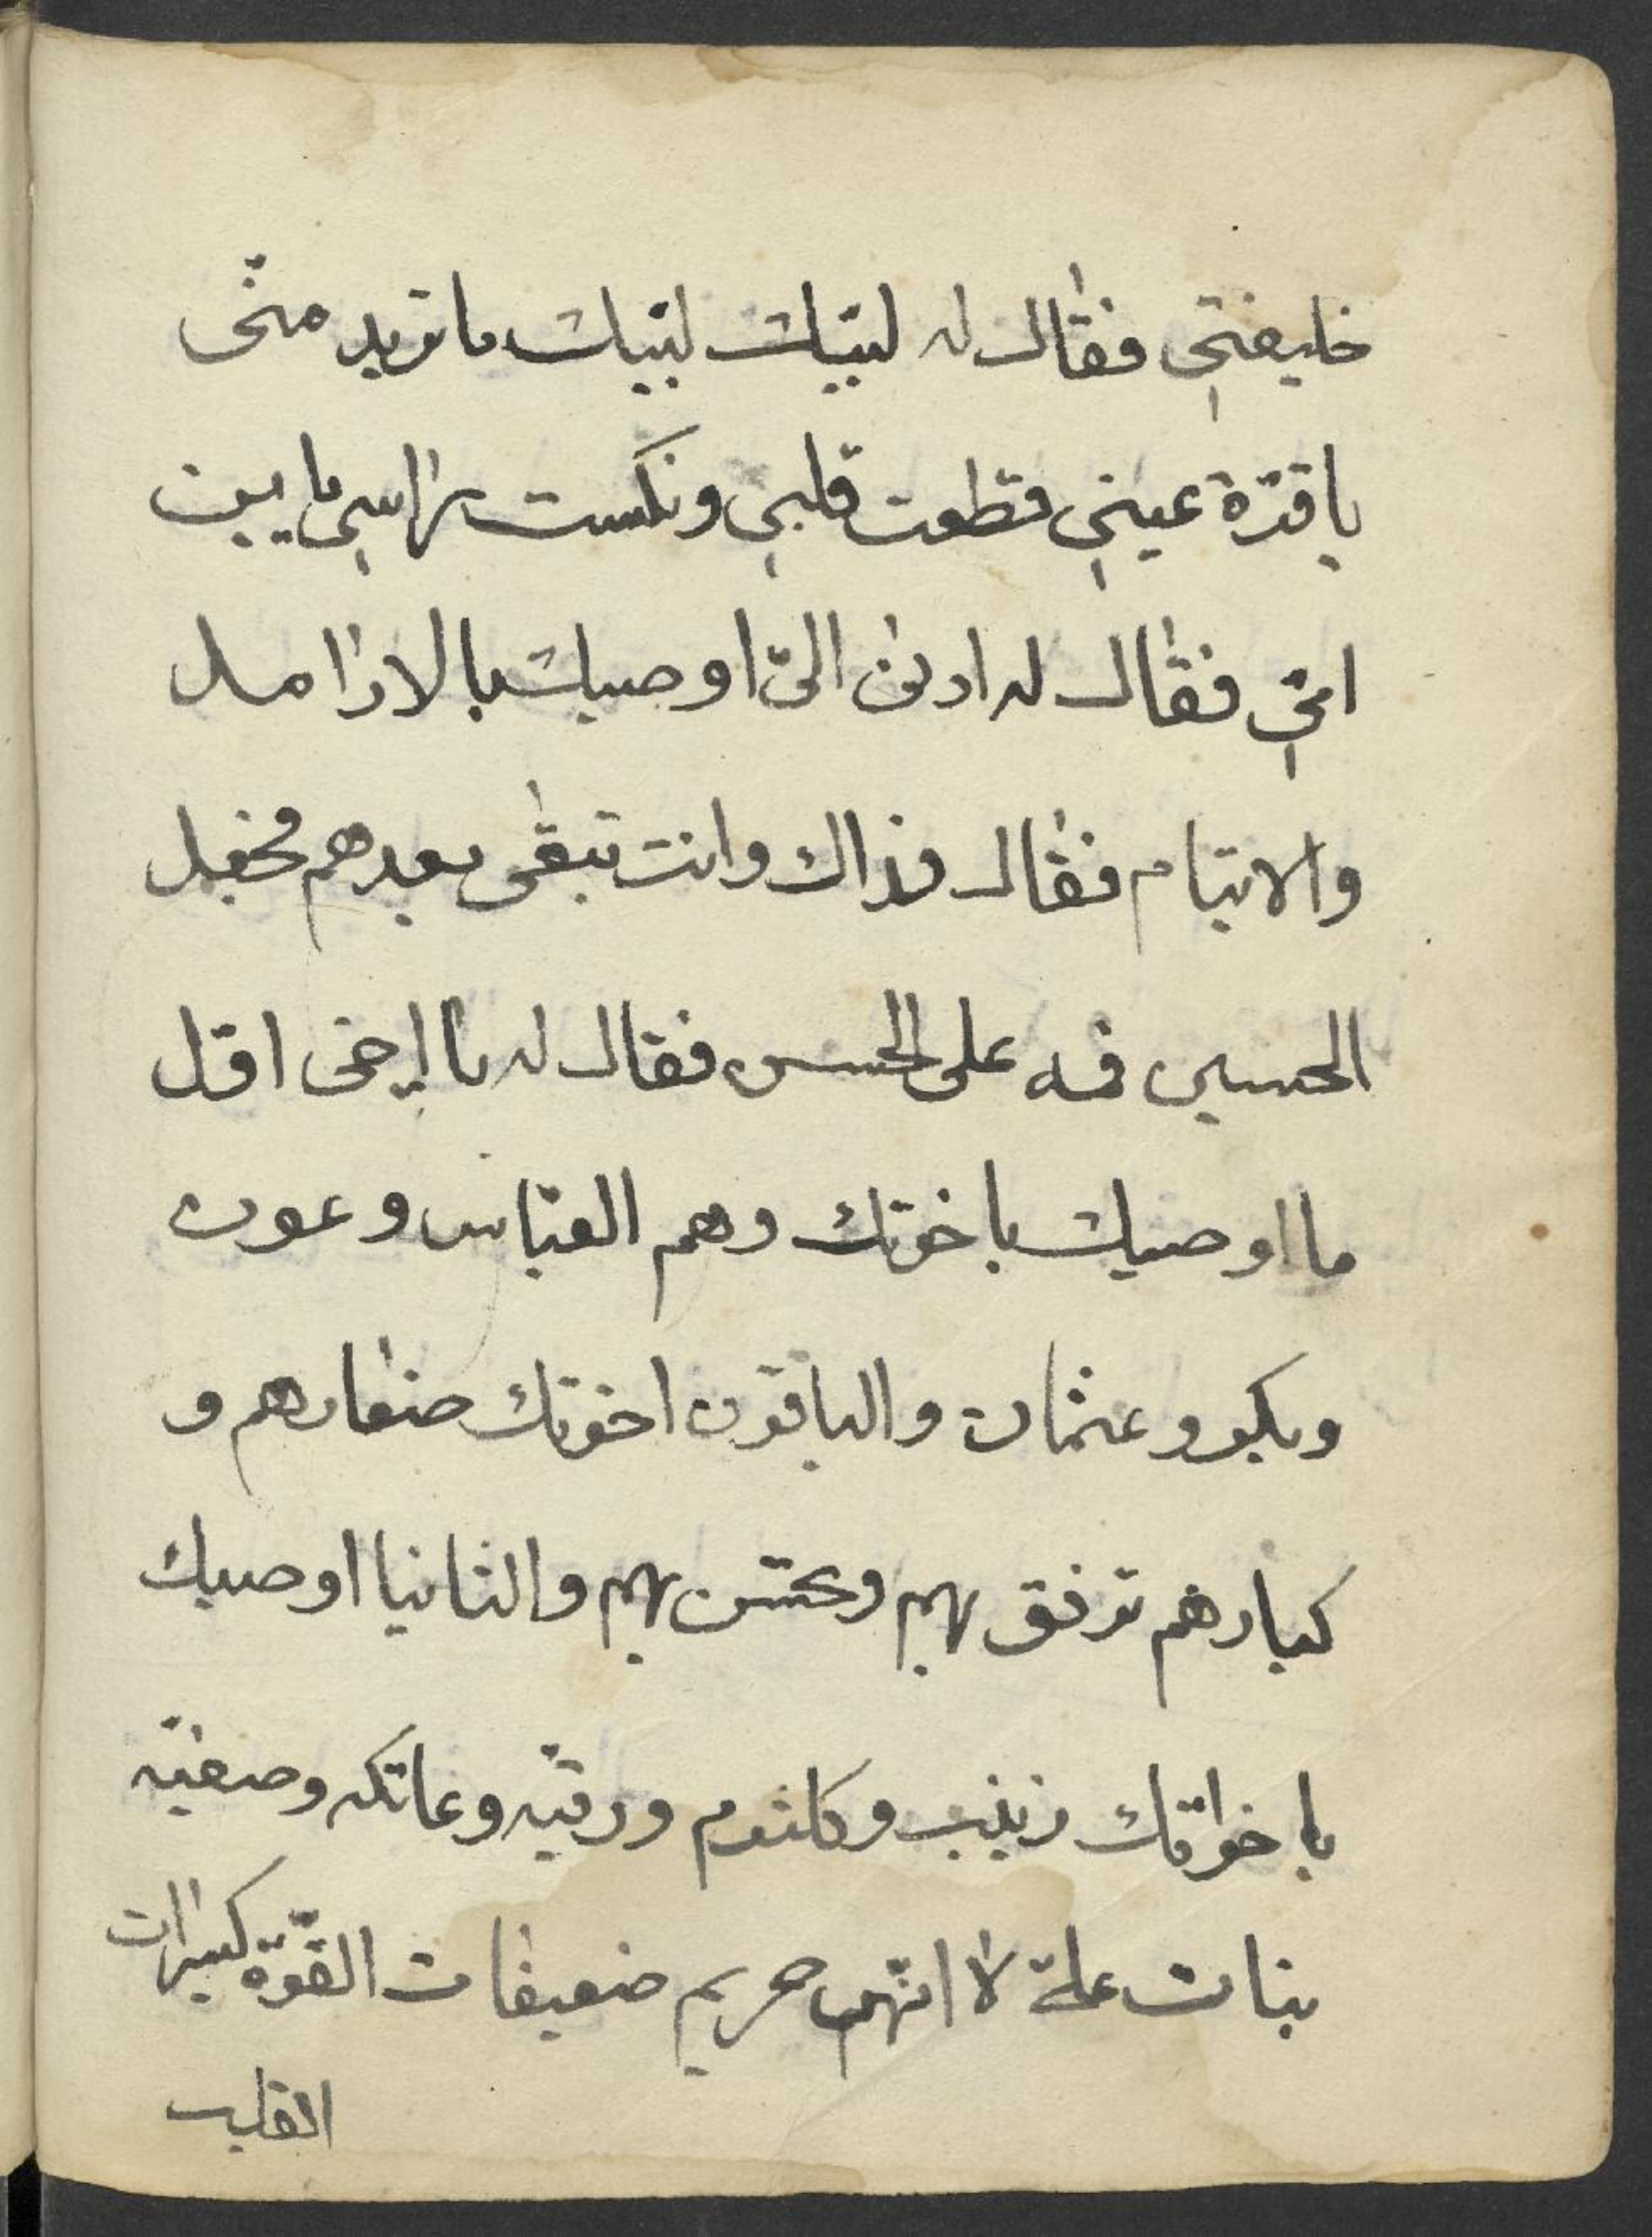 خليفتي فقال له لبيك لبيك ما تريد منى
يا قرة عيني قطعت قلبي ونكست راسي ما بين
امتي فقال له ادن الىّ اوصيك بالارامل
والايتام فقال فذاك وانت تبقى بعدهم فجعل
الحسين فمه على الحسن فقال له يا اخى اقل
ما اوصيك باخوتك وهم العبّاس وعون
وبكر وعثمان والباقون اخوتك صغارهم و
كبارهم ترفق بهم وتحسن بهم والثانيا اوصيك
باخواتك زينب وكلثوم ورقيّه وعاتكه وصفيّه
بنات علة لا انّهن حريم ضعيفات القوّة كسيرات
القلب